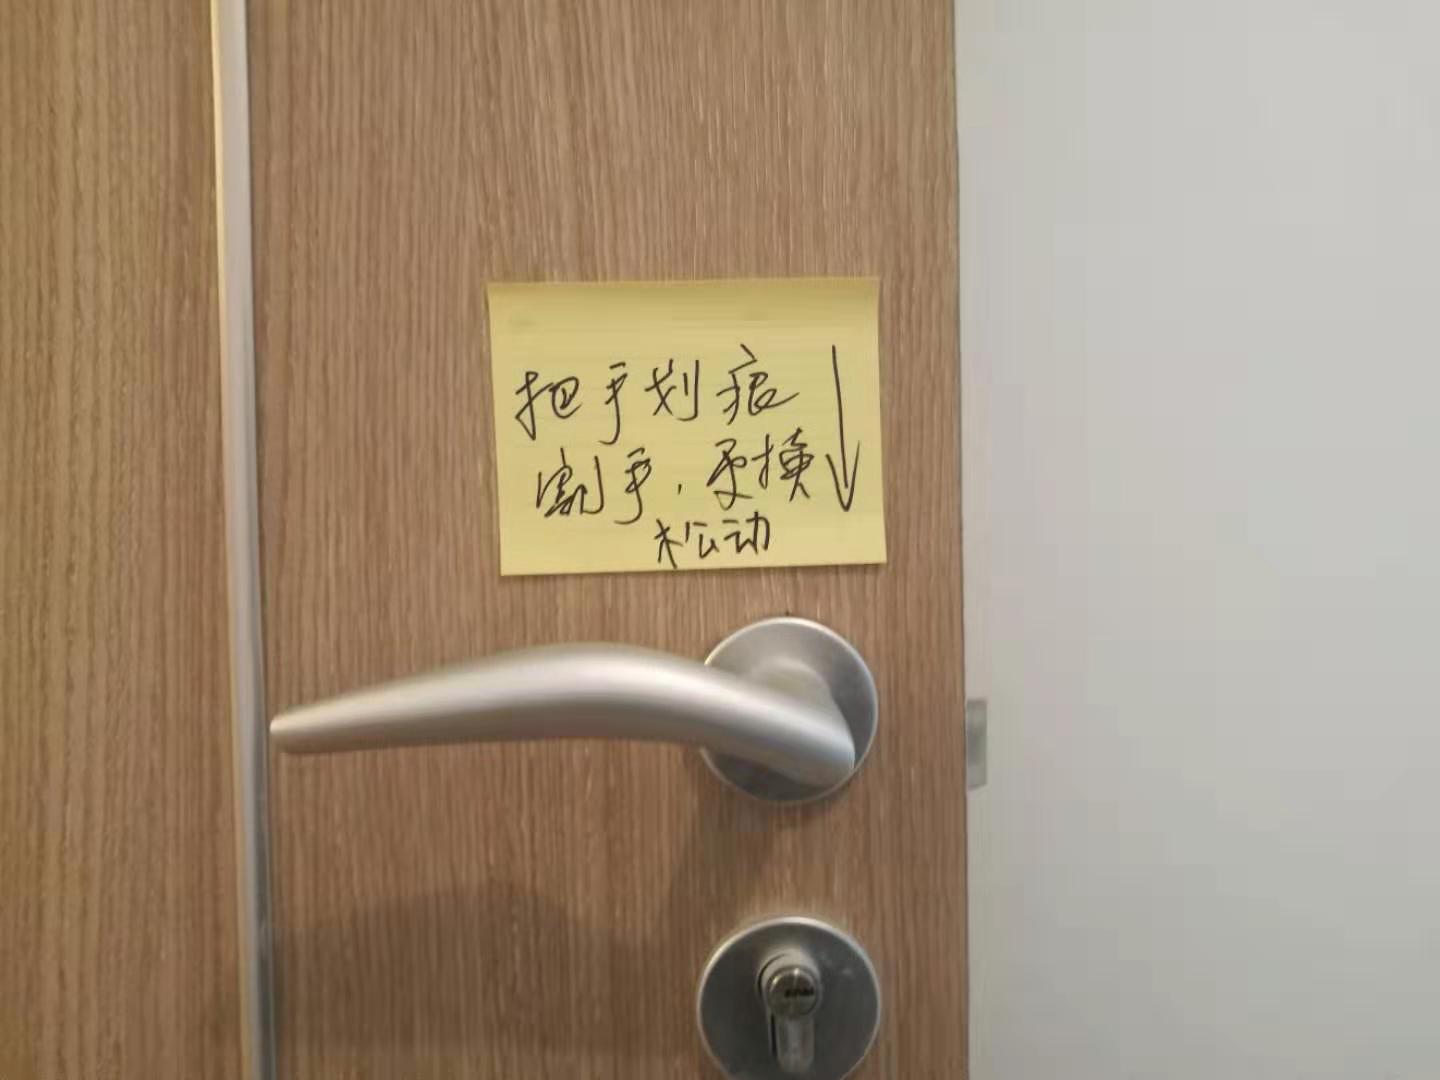 把手划痕
割手,更换
松动